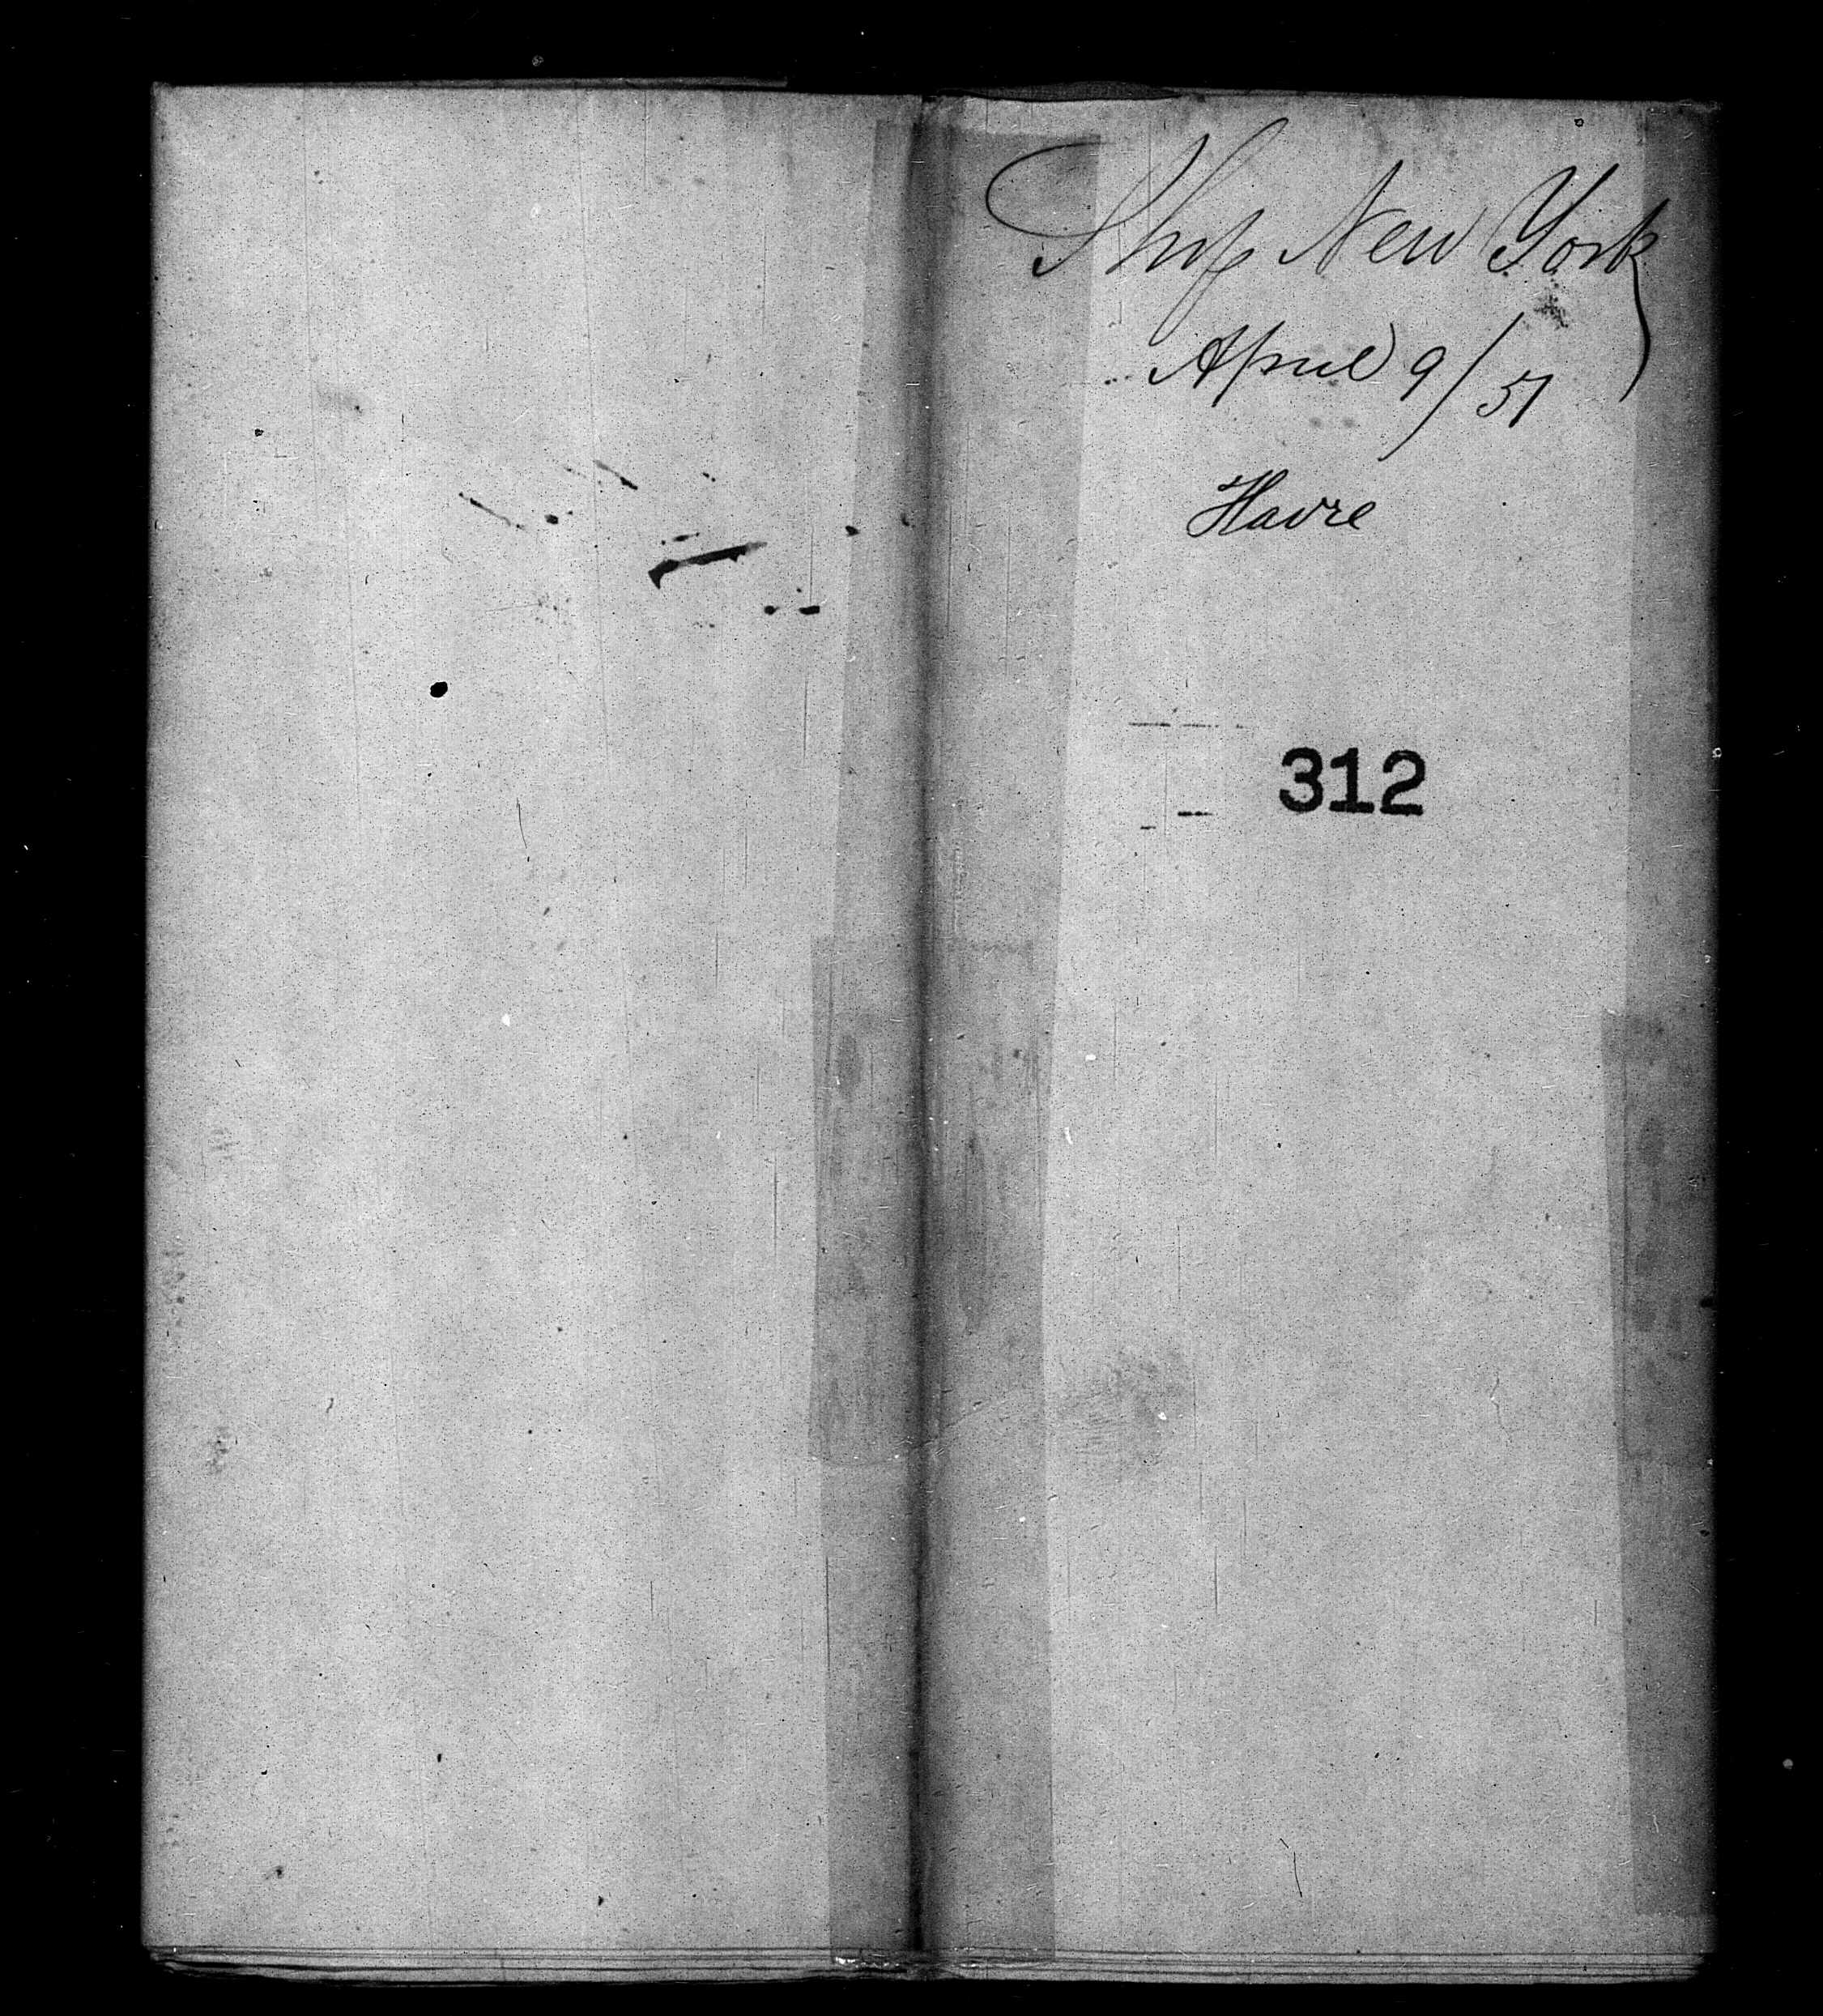 Ship New York
April 9/51
Havre
312